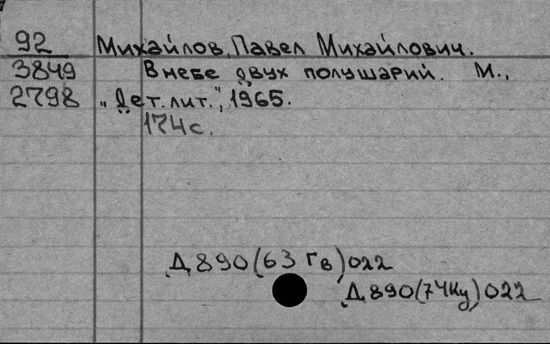 92 Михайлов, Павел Михайлович.
3849 В небе двух полушарий. М.,
2798 „Дет. лит.", 1965.
174 с.
Д 890 (63 Гв) 022
Д 890 (74 Ку) 022